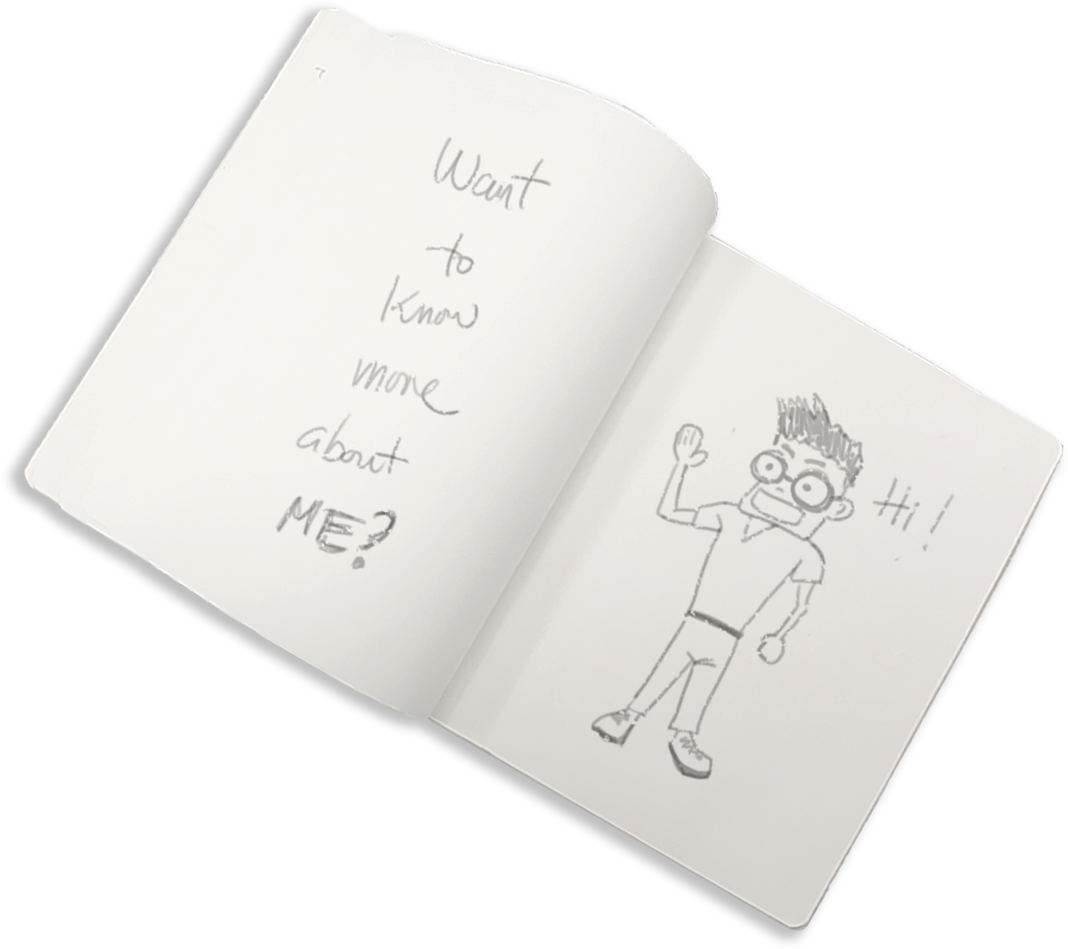 Want
to
know
more
about
ME?
Hi!